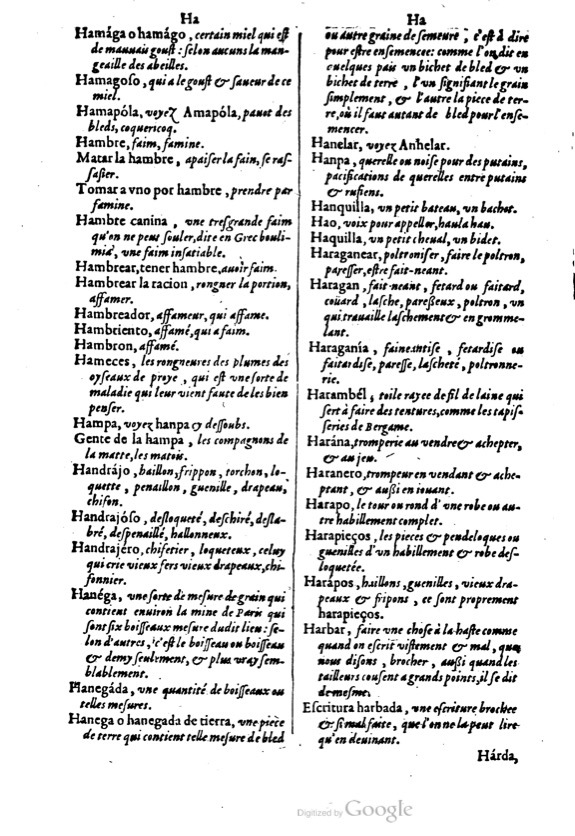 Ha
Hamága o hamágo, certain miel qui est
de mauuais goust: selon aucuns la man-
geaille des abeilles.
Hamagoso, qui a le goust & saueur de ce
miel.
Hamapóla, voyez Amapóla, pauot des
bleds, coquericoq.
Hambre, faim, famine.
Matar la hambre, apaiser la fain, se ras-
sasier.
Tomar a vno por hambre, prendre par
famine.
Hambre canina, vne tresgrande faim
qu'on ne peus souler, dite en Grec bouli-
mia, vne faim insatiable.
Hambrear, tener hambre, auoir faim.
Hambrear la racion, rongner la portion,
affamer.
Hambreador, affameur, qui affame.
Hambriento, affamé, qui a faim.
Hambron, affamé.
Hameces, les rongneures des plumes des
oyseaux de proye, qui est vne sorte de
maladie qui leur vient faute de les bien
penser.
Hampa, voyez hanpa & dessoubs.
Gente de la hampa, les compagnons de
la matte, les matois.
Handrájo, haillon, frippon, torchon, lo-
quette, penaillon, guenille, drapeau,
chifon.
Handrajóso, desloqueté, deschiré, desla-
bré, despenaillé, hallonneux.
Handrajéro, chifetier, loqueteux, celuy
qui crie vieux fers vieux drapeaux, chi-
fonnier.
Hanéga, vne sorte de mesure de grain qui
contient enuiron la mine de Paris qui
sont six boisseaux mesure dudit lieu: se-
lon d'autres, c'est le boisseau ou boisseau
& demy seulement, & plus vray sem-
blablement.
Hanegáda, vne quantité de boisseaux ou
telles mesures.
Hanega o hanegada de tierra, vne piece
de terre qui contient telle mesure de bled
Ha
ou autre graine de semeure, c'est à dire
pour estre ensemencee: comme l'on dit en
cuelques pais vn bichet de bled & vn
bichet de terre, l'vn signifiant le grain
simplement, & l'autre la piece de ter-
re, où il faut autant de bled pour l'ense-
mencer.
Hanelar, voyez Anhelar.
Hanpa, querelle ou noise pour des putains,
pacifications de querelles entre putains
& rufiens.
Hanquilla, vn petit bateau, vn bachot.
Hao, voix pour appeller, haula hau.
Haquilla, vn petit cheual, vn bidet.
Haraganear, poltroniser, faire le poltron,
paresser, estre fait-neant.
Haragan, fait-neant, fetard ou faitard,
coüard, lasche, paresseux, poltron, vn
qui trauaille laschement & en gromme-
lant.
Haraganía, faineantise, fetardise ou
faitardise, paresse, lascheté, poltronne-
rie.
Harambél, toile rayee de fil de laine qui
sert à faire des tentures, comme les tapis-
series de Bergame.
Harána, tromperie au vendre & achepter,
& au jeu.
Haranero, trompeur en vendant & ache-
ptant, & aussi en iouant.
Harapo, le tour ou rond d'vne robe ou au-
tre habillement complet.
Harapieços, les pieces & pendeloques ou
guenilles d'vn habillement & robe des-
loquetée.
Harápos, haillons, guenilles, vieux dra-
peaux & fripons, ce sont proprement
harapieços.
Harbar, faire vne chose à la haste comme
quand on escrit vistement & mal, que
nous disons, brocher, aussi quand les
tailleurs cousent a grands points, il se dit
de mesme.
Escritura harbada, vne escriture brochee
& si mal faite, que l'on ne la peut lire
qu'en deuinant.
Hárda,
Digitized by Google